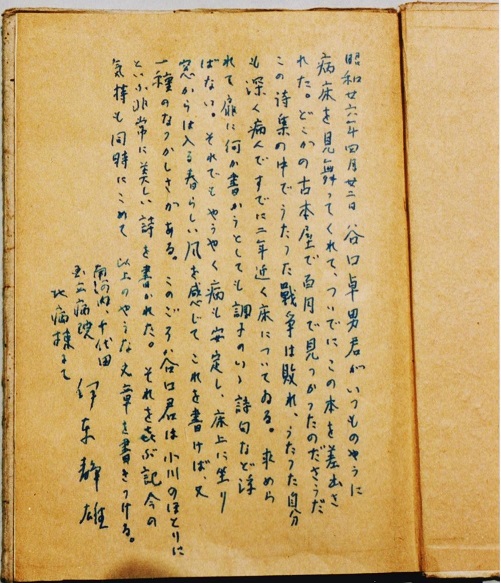 昭和廿六年四月廿二日 谷口卓男君がいつものやうに
病床を見舞ってくれて、ついでにこの本を差出さ
れた。どこかの古本屋で百円で見つかったのださうだ
この詩集の中でうたった戰争は敗れ、うたった自分
も深く病んですでに二年近く床についてゐる。求めら
れて扉に何か書かうとしても調子のいゝ詩句など浮
ばない。それでもやうやく病も安定し、床上に坐り
窓からは入る春らしい風を感じてこれを書けば、又
一種のなつかしさがある。このごろ谷口君は小川のほとりに
といふ非常に美しい詩を書かれた。それを喜ぶ記念の
気持も同時にこめて 以上のやうな文章を書きつける。
南河内、千代田
病院
北病棟にて
伊东靜雄